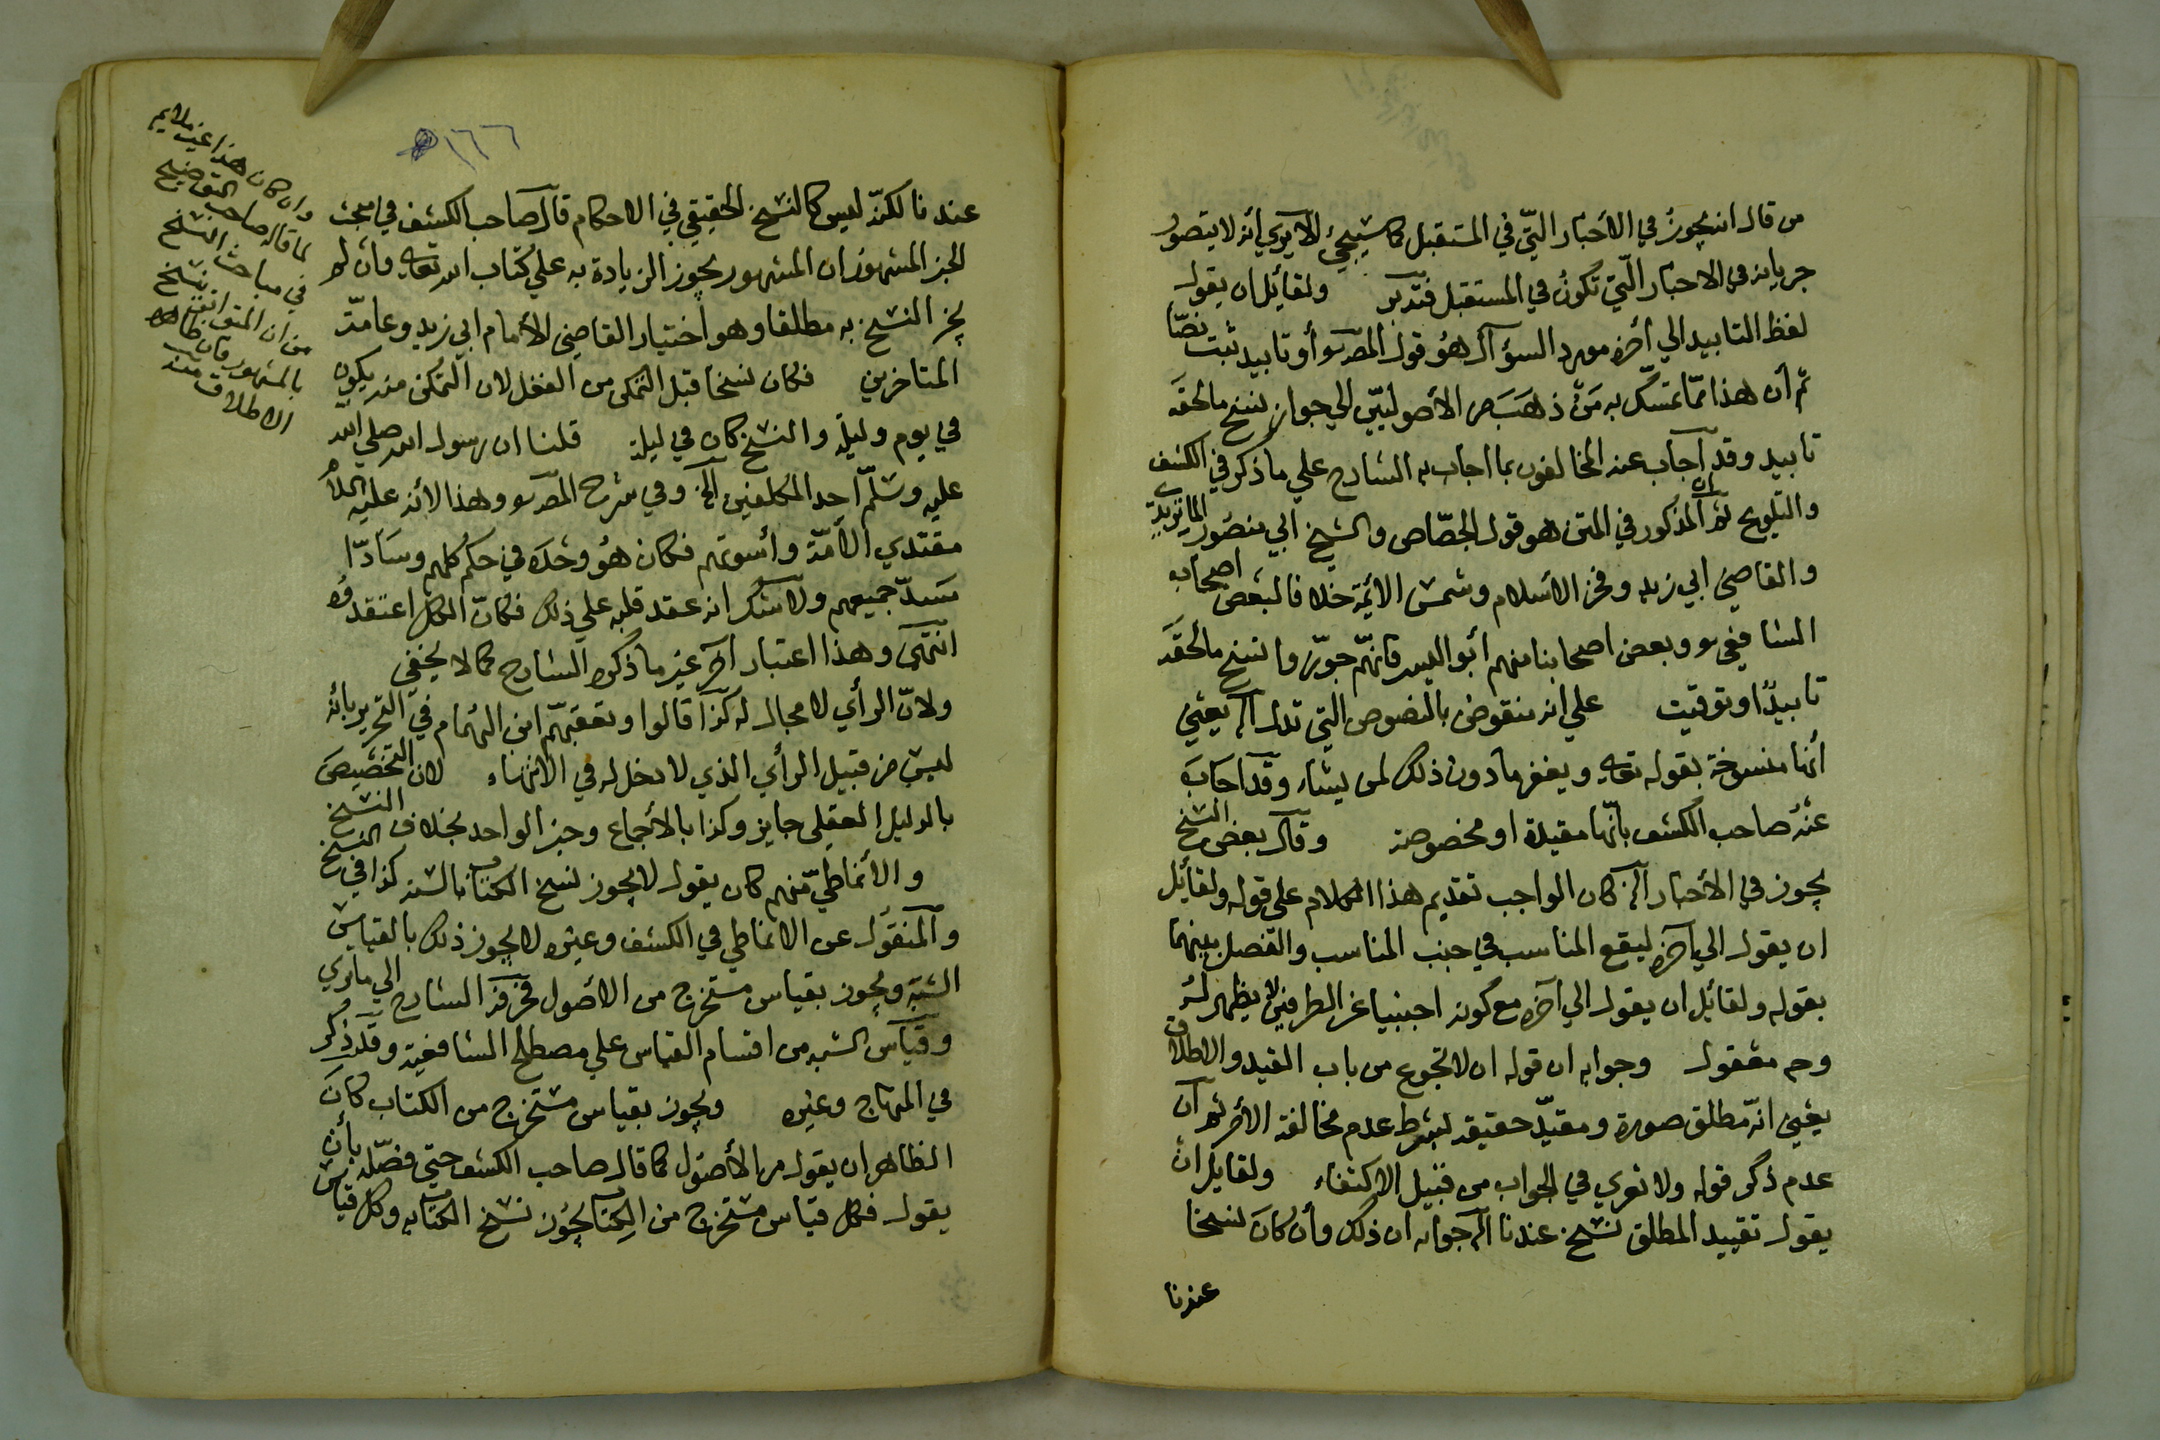 من قال انه يجوز في الأخبار التي في المستقبل كما سيجيئ الا يري أنه لا يتصور
جريانه في الاخبار التي تكون في المستقبل فتدبر ولقائل ان يقول
لفظ التابيد الي أخره مورد السؤال هو قول المصـ أو تابيد ثبت نصّا
ثم أن هذا مما تمسّك به من ذهب من الأصوليين الي جواز نسخ ما لحقه
تابيد وقد اجاب عنه المخالفون بما اجاب به الشارح علي ما ذكر في الكشف
والتلويح ثم ان المذكور في المتن هو قول الجصّاص والشيخ ابي منصور الماتريدية
والقاضي ابي زيد وفخر الاسلام وشمس الأئمة خلافا لبعض اصحاب
الشافعي وبعض اصحابنا منهم أبو اليسر فانهم جوّزوا نسخ ما لحقه
تابيدٌ او توقيت علي انه منقوض بالنصوص التي تدل الخ يعني
أنها منسوخة بقوله تعالى ويغفر ما دون ذلك لمن يشاء وقد اجاب
عنه صاحب الكشف بأنها مقيدة او مخصوصة وقال بعض النسخ
يجوز في الأخبار الخ كان الواجب تقديم هذا الكلام علي قوله ولقائل
ان يقول الي آخره ليقع المناسب في جنب المناسب والفصل بينهما
بقوله ولقائل ان يقول الي آخره مع كونه اجنبيا عن الطرفين لا يظهر له
وجه معقول وجوابه ان قوله ان لا تجوع من باب القيد والاطلاق
يعني انه مطلق صورة ومقيّد حقيقة بشرط عدم مخالفة الأمر ثم ان
عدم ذكر قوله ولا تعري في الجواب من قبيل الاكتفاء ولقايل ان
يقول تقييد المطلق نسخ عندنا الخ جوابه ان ذلك وأن كان نسخا
عندنا
١٦٦
عندنا لكنّه ليس كالنسخ الحقيقي في الاحكام قال صاحب الكشف في مبحث
الخبر المشهور ان المشهور يجوز الزيادة به علي كتاب الله تعالى وان لم
يجز النسخ به مطلقا وهو اختيار القاضي الأمام ابي زيد وعامّة
المتاخرين فكان نسخا قبل التمكن من الفعل لان التمكن منه يكون
في يوم وليلة والنسخ كان في ليلة قلنا ان رسول الله صلي الله
عليه وسلّم احد المكلفين الخ وفي شرح المصـ وهذا لأنه عليه السلام
مقتدي الأمّة وأسوتهم فكان هو وحده في حكم كلهم وسادّا
مسدّ جميعهم ولا شك انه عقد قلبه علي ذلك فكانّ الكل اعتقدوه
انتهى وهذا اعتبار آخر غير ما ذكره الشارح كما لا يخفي
ولانّ الرأي لا مجال له كذا قالوا وتعقبهم ابن الهمام في التحرير بأنه
ليس من قبيل الرأي الذي لا دخل له في الانتهاء لان التخصيص
بالدليل العقلي جايز وكذا بالأجماع وخبر الواحد بخلاف النسخ
والأنماطي منهم كان يقول لا يجوز نسخ الكتاب بالسنة كذا في النسخ
والمنقول عن الانماطي في الكشف وغيره لا يجوز ذلك بالقياس
الشبه ويجوز بقياس مستخرج من الاصول فحرفه الشارح الي ما تري
وقياس الشبه من اقسام القياس علي مصطلح الشافعية وقد ذكر
في المنهاج وغيره ويجوز بقياس مستخرج من الكتاب كان
الظاهر ان يقول من الأصول كما قال صاحب الكشف حتي فصّله بأن
يقول فكل قياس مستخرج من الكتاب يجوز نسخ الكتاب به وكل قياس
وان كان هذا غير ملايم
لما قاله صاحب التوضيح
في مباحث النسخ
من ان المتواتر ينسخ
بالمشهور فان ظاهر
الاطلاق منه